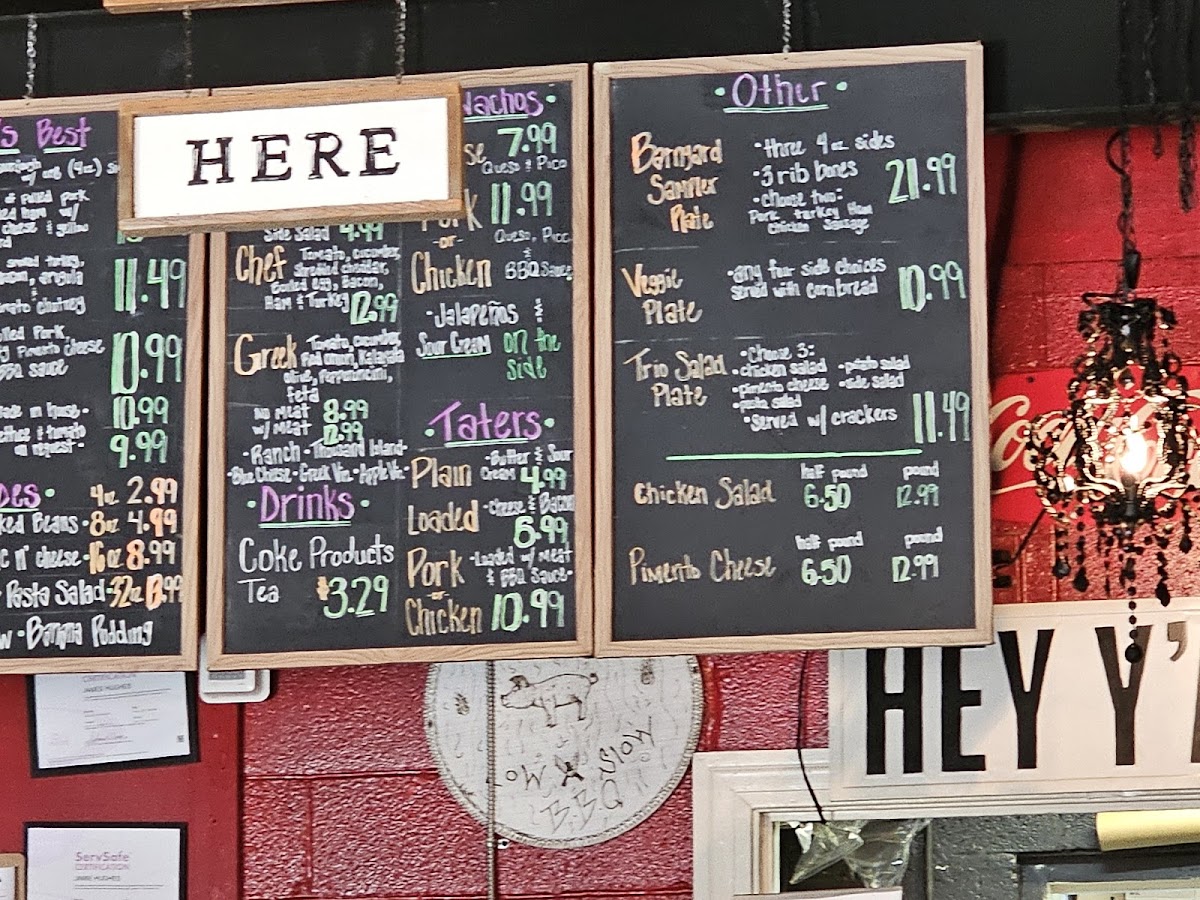 HERE
's Best
w/ one (4oz)
of pulled pork
w/
cheese & yellow
smoked turkey,
bacon, arugula
&
tomato chutney
11.49
pulled Pork,
Pimento cheese
BBQ sauce
10.99
made in house
10.99
lettuce & tomato
on request
9.99
des
4oz 2.99
ked Beans • 8oz 4.99
c n' cheese • 16oz 8.99
Pasta Salad • 32oz 13.99
w • Banana Pudding
Side Salad 4.99
Chef
Tomato, cucumber,
Shredded cheddar,
Boiled egg, Bacon,
Ham & Turkey
12.99
Greek
Tomato, cucumber,
Red onion, Kalamata
olive, Pepperoncini,
feta
No Meat 8.99
w/ Meat 12.99
• Ranch • Thousand Island •
Blue Cheese • Greek Vin. • Apple Vin.
• Drinks •
Coke Products
Tea $3.29
Nachos •
7.99
se
Queso & Pico
Pork 11.99
-or-
Queso, Pico
Chicken
&
BBQ Sauce
• Jalapeños &
Sour Cream on the
side
• Taters •
Plain
• Butter & Sour
Cream 4.99
Loaded
• Cheese & Bacon
6.99
Pork
• Loaded w/ meat
& BBQ Sauce •
-or-
Chicken 10.99
• Other •
Barnyard
Sampler
Plate
• three 4oz sides
• 3 rib bones
• choose two:
Pork turkey Ham
Chicken Sausage
21.99
Veggie
Plate
• any four side choices
served with cornbread
10.99
Trio Salad
Plate
• Choose 3:
• chicken salad • potato salad
• pimento cheese • side salad
• pasta salad
• served w/ crackers
11.49
half pound pound
Chicken Salad 6.50 12.99
half pound pound
Pimento Cheese 6.50 12.99
Coca
HEY Y'A
LOW & SLOW
BBQ
CERTIFICATION
JAMIE HUGHES
ServSafe
CERTIFICATION
JAMIE HUGHES